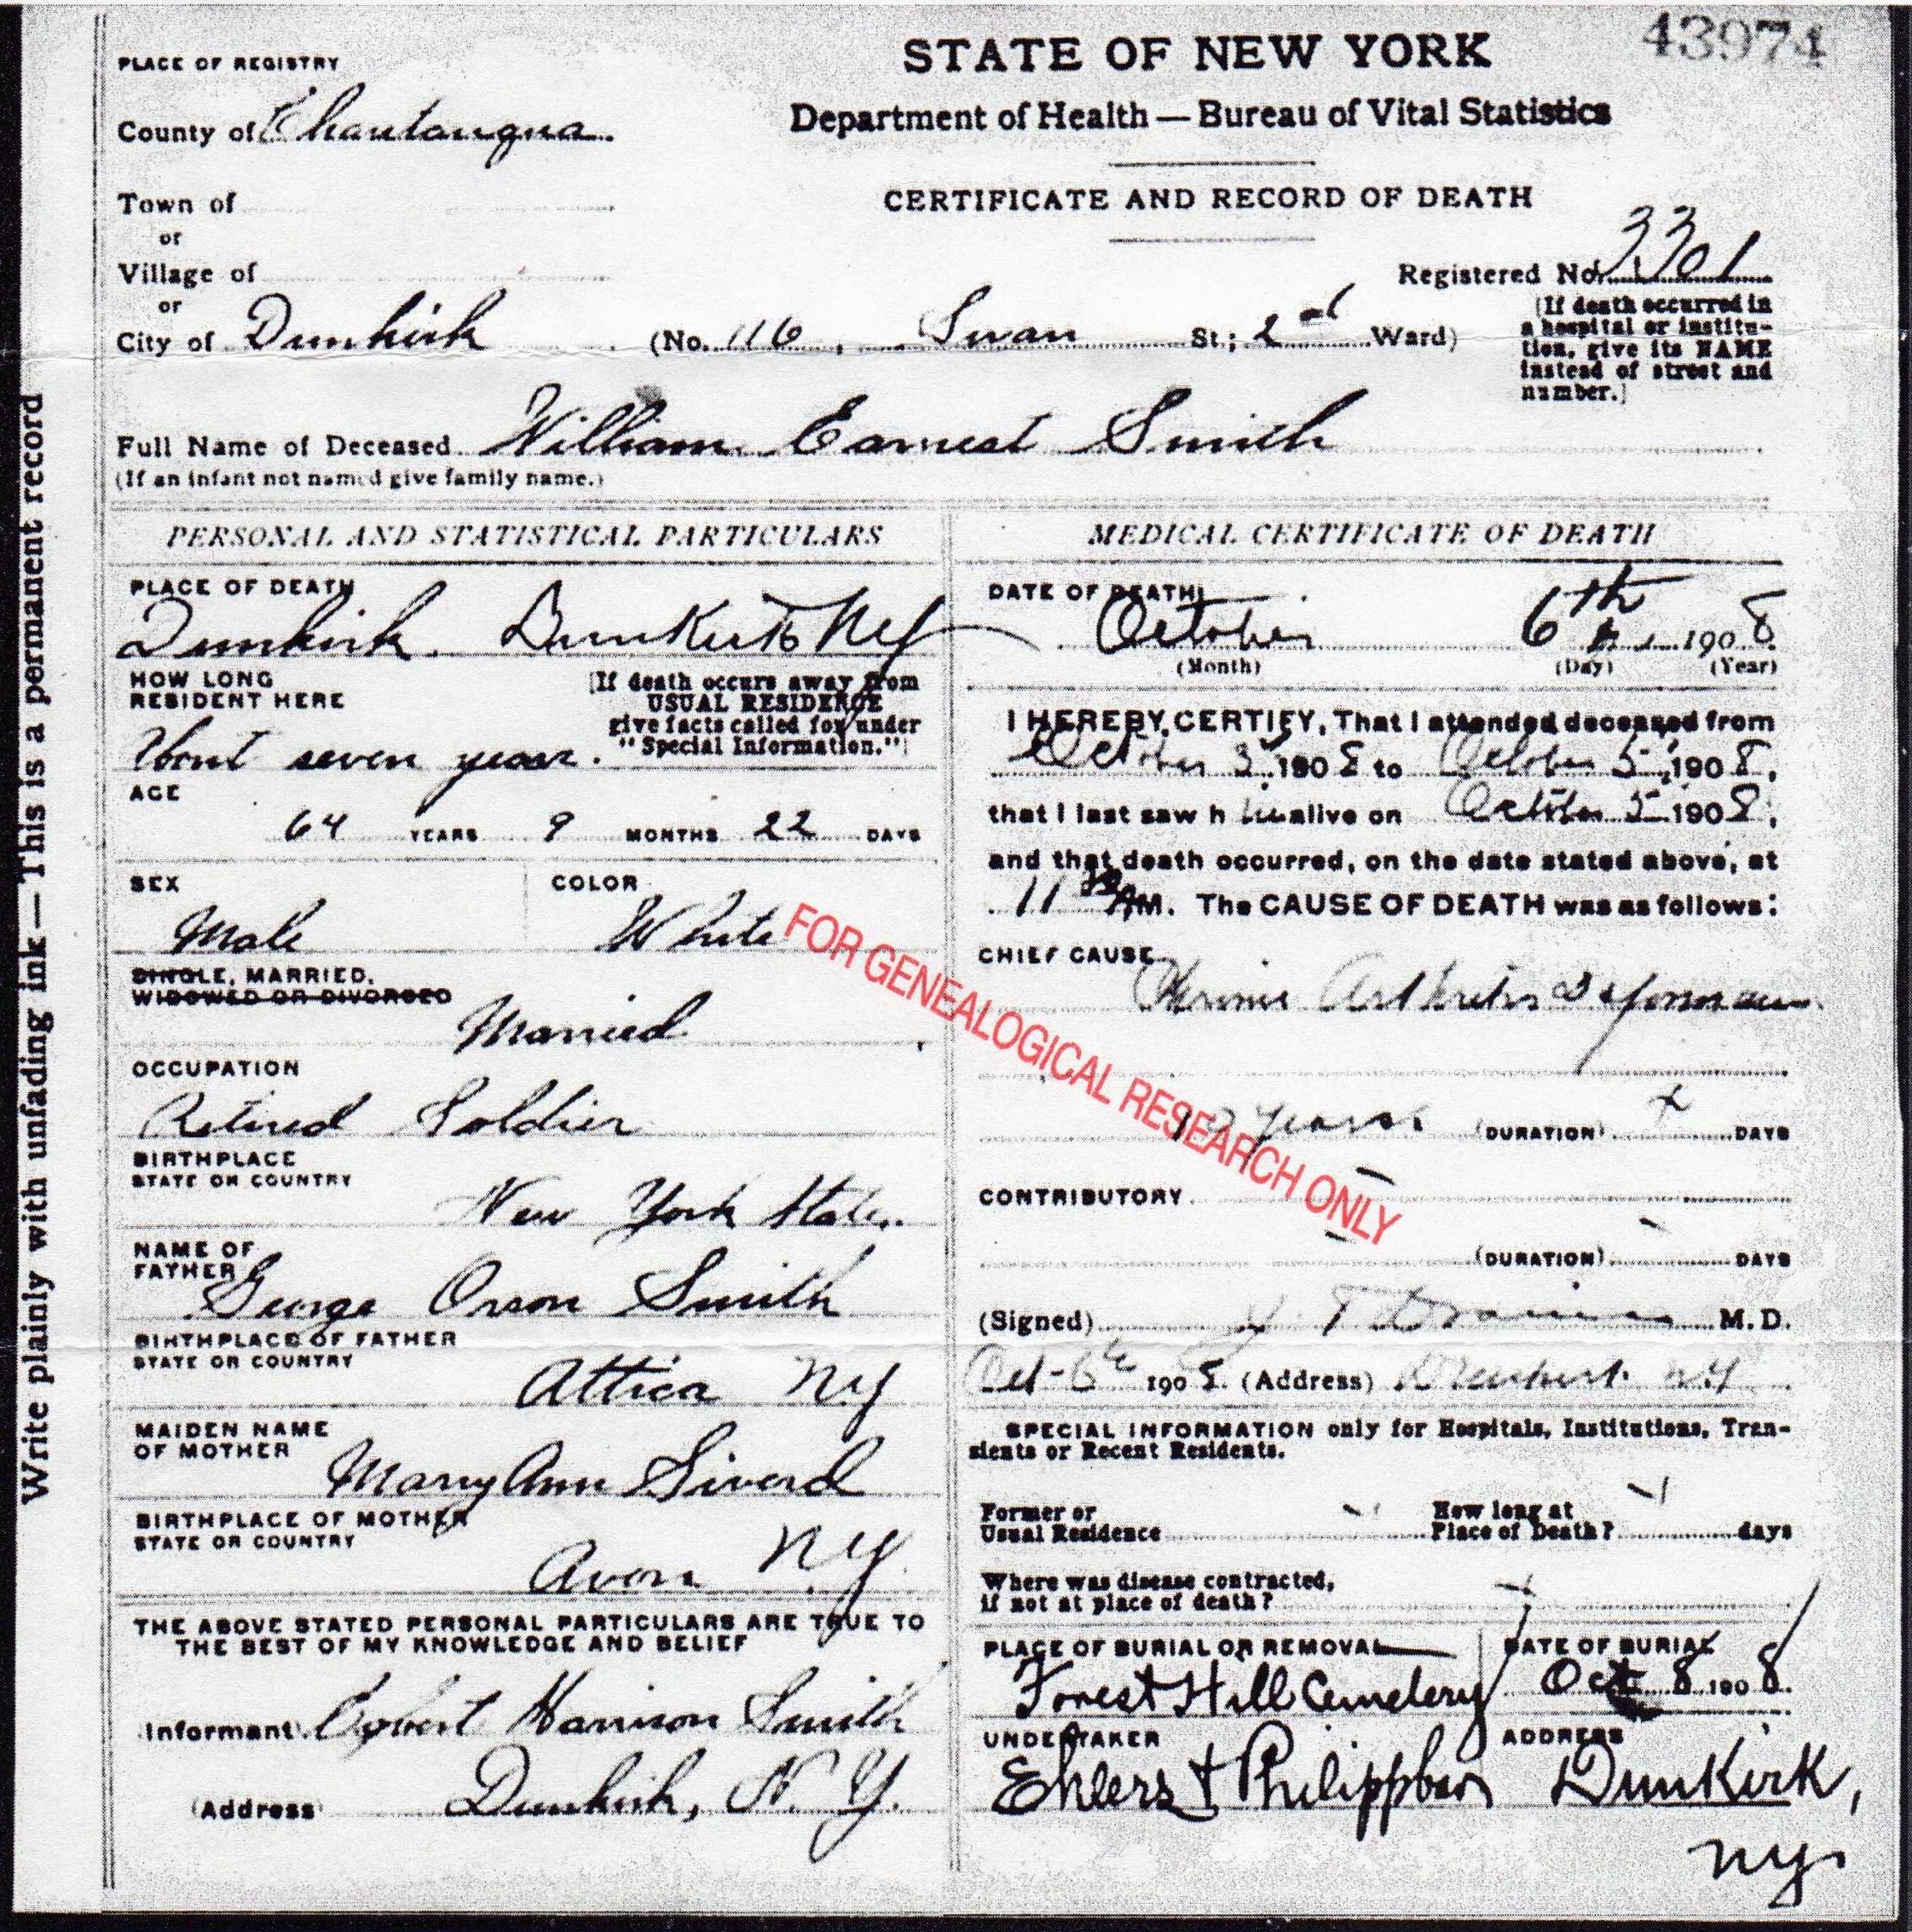 43974
PLACE OF REGISTRY
STATE OF NEW YORK
Department of Health — Bureau of Vital Statistics
County of Chautauqua
CERTIFICATE AND RECORD OF DEATH
Town of
or
Village of
or
Registered No. 3301
City of Dunkirk (No. 116, Swan St.; 2nd Ward)
[If death occurred in
a hospital or institu-
tion, give its NAME
instead of street and
number.]
Full Name of Deceased William Earnest Smith
(If an infant not named give family name.)
Write plainly with unfading ink—This is a permanent record
PERSONAL AND STATISTICAL PARTICULARS
PLACE OF DEATH
Dunkirk. Dunkirk NY
HOW LONG
RESIDENT HERE
[If death occurs away from
USUAL RESIDENCE
give facts called for under
"Special Information."]
About seven years.
AGE
64 YEARS 9 MONTHS 22 DAYS
SEX
Male
COLOR
White
SINGLE, MARRIED,
WIDOWED OR DIVORCED
Married
OCCUPATION
Retired Soldier
BIRTHPLACE
STATE OR COUNTRY
New York State.
NAME OF
FATHER
George Orson Smith
BIRTHPLACE OF FATHER
STATE OR COUNTRY
Attica NY
MAIDEN NAME
OF MOTHER
Mary Ann Siverd
BIRTHPLACE OF MOTHER
STATE OR COUNTRY
Avon N.Y.
THE ABOVE STATED PERSONAL PARTICULARS ARE TRUE TO
THE BEST OF MY KNOWLEDGE AND BELIEF
Informant Harrison Smith
(Address) Dunkirk, N. Y.
MEDICAL CERTIFICATE OF DEATH
DATE OF DEATH
October 6th 1908
(Month) (Day) (Year)
I HEREBY CERTIFY, That I attended deceased from
October 3 1908 to October 5 1908,
that I last saw him alive on October 5 1908,
and that death occurred, on the date stated above, at
11 30 AM. The CAUSE OF DEATH was as follows:
CHIEF CAUSE
Chronic Arthritis Deformans.
years (DURATION) DAYS
CONTRIBUTORY
(DURATION) DAYS
(Signed) M.D.
Oct-6th 1908. (Address) Dunkirk NY
SPECIAL INFORMATION only for Hospitals, Institutions, Tran-
sients or Recent Residents.
Former or
Usual Residence
How long at
Place of Death? days
Where was disease contracted,
if not at place of death?
PLACE OF BURIAL OR REMOVAL
Forest Hill Cemetery
DATE OF BURIAL
Oct 8 1908.
UNDERTAKER
Ehlers & Philippbar
ADDRESS
Dunkirk,
NY
FOR GENEALOGICAL RESEARCH ONLY